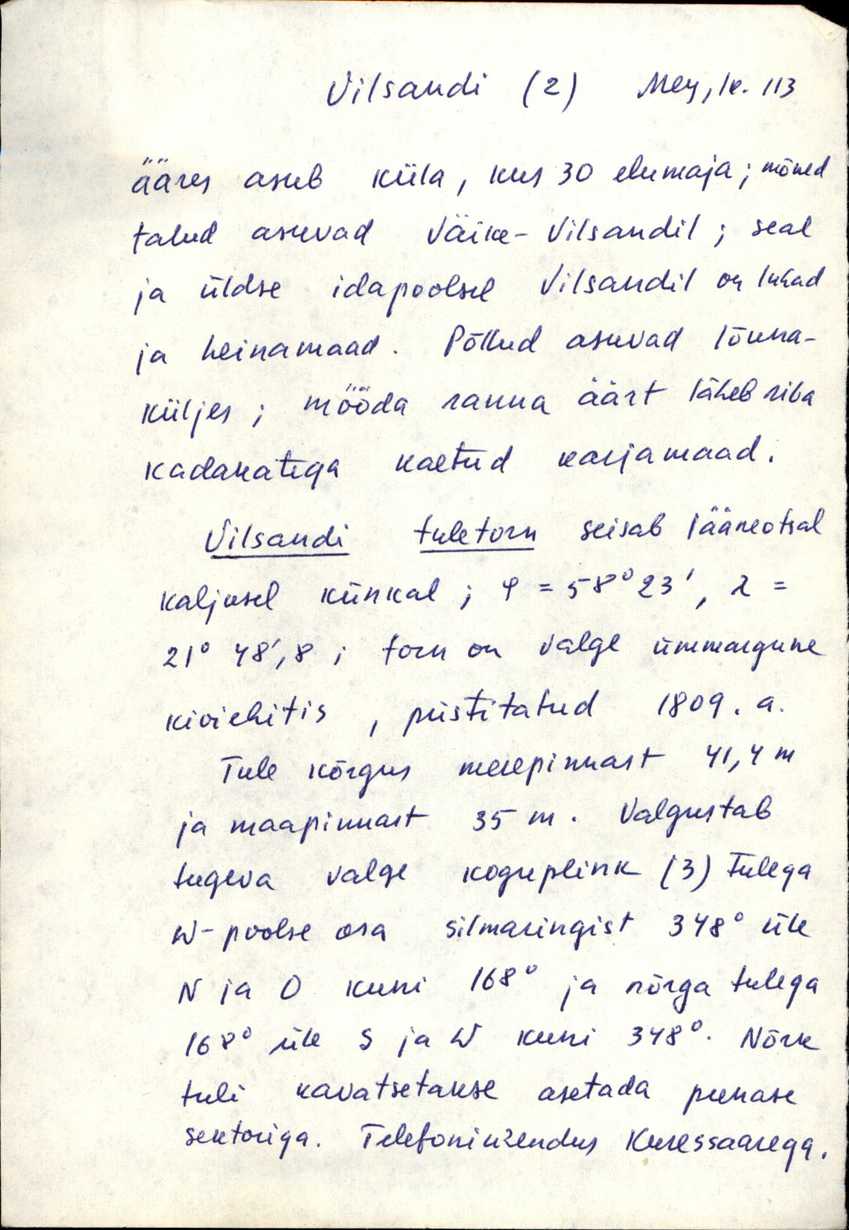 Vilsandi (2) Mey, lk. 113
ääres asub küla, kus 30 elumaja; mõned
talud asuvad Väike-Vilsandil; seal
ja üldse idapoolsel Vilsandil on luhad
ja heinamaad. Põllud asuvad lõuna-
küljes; mööda ranna äärt läheb riba
kadakatega kaetud karjamaad.
Vilsandi tuletorn seisab lääneotsal
kaljusel künkal; φ = 58° 23', λ =
21° 48',8; torn on valge ümmargune
kiviehitis, püstitatud 1809. a.
Tule kõrgus merepinnast 41,4 m
ja maapinnast 35 m. Valgustab
tugeva valge koguplink (3) tulega
W-poolse osa silmaringist 348° üle
N ja O kuni 168° ja nõrga tulega
168° üle S ja W kuni 348°. Nõrk
tuli kavatsetakse asetada punase
sektoriga. Telefoniühendus Kuressaarega.